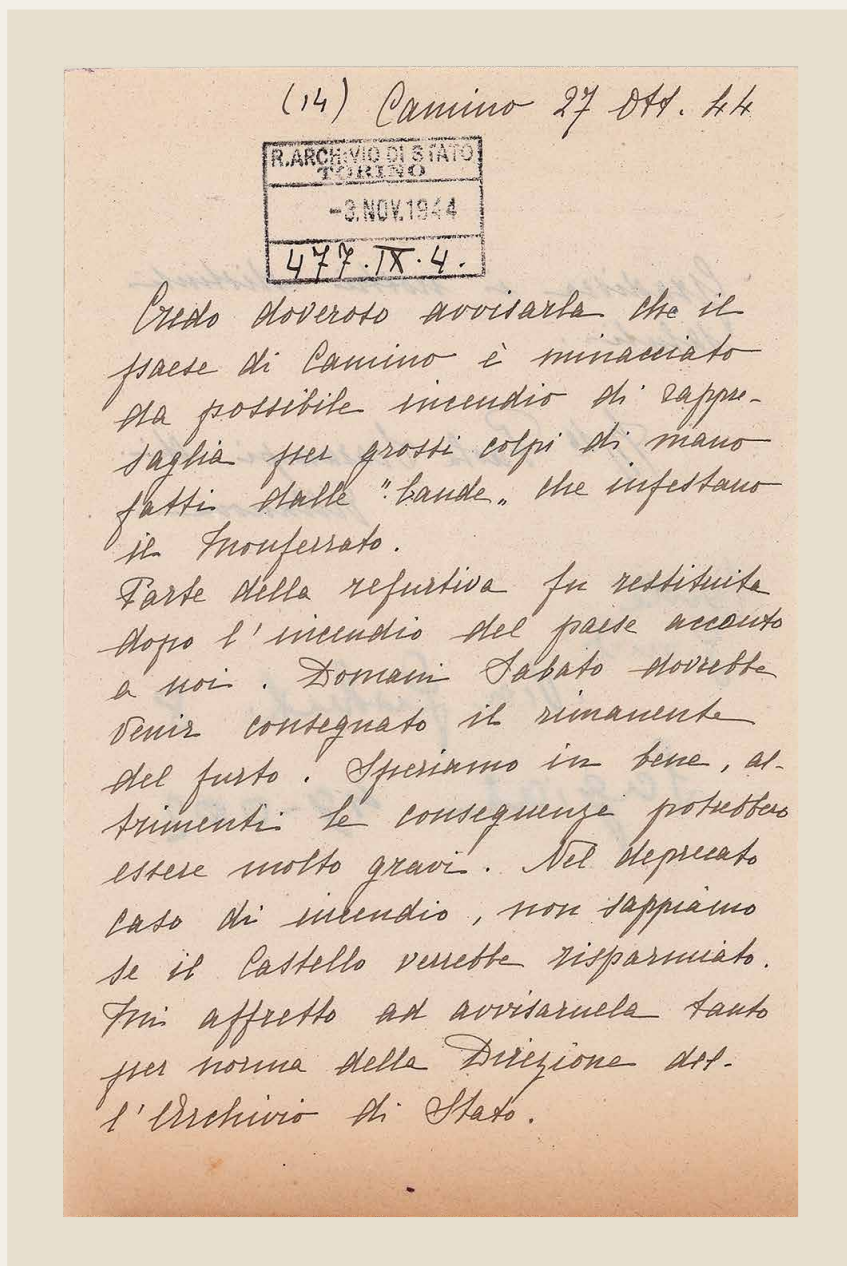 (14) Camino 27 Ott. 44
R. ARCHIVIO DI STATO
TORINO
-3.NOV.1944
477.IX.4.
Credo doveroso avvisarla che il
paese di Camino è minacciato
da possibile incendio di rappre-
saglia per grossi colpi di mano
fatti dalle "bande" che infestano
il Monferrato.
Parte della refurtiva fu restituita
dopo l'incendio del paese accanto
a noi. Domani Sabato dovrebbe
venir consegnato il rimanente
del furto. Speriamo in bene, al-
trimenti le conseguenze potrebbero
essere molto gravi. Nel deprecato
caso di incendio, non sappiamo
se il Castello verrebbe risparmiato.
Mi affretto ad avvisarnela tanto
per norma della Direzione del-
l'Archivio di Stato.